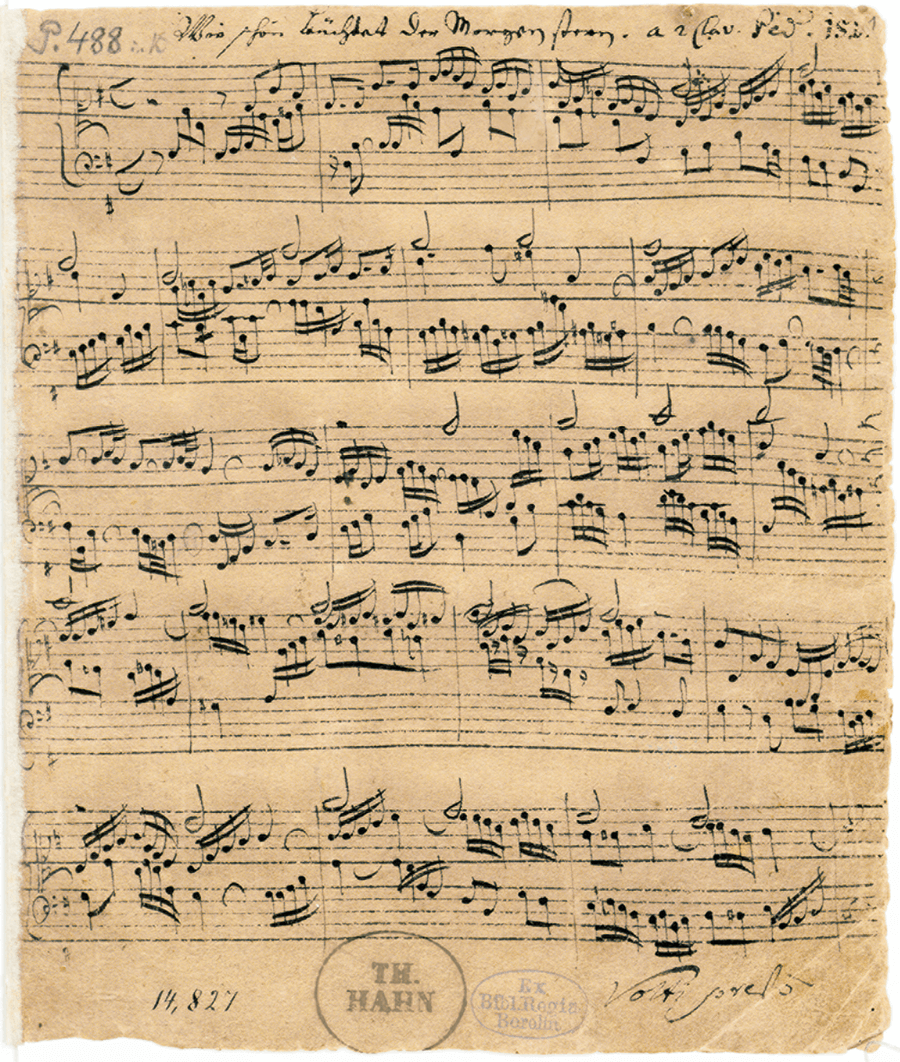 P. 488. K Wie schön leüchtet der Morgen stern. a 2 Clav. Ped.
14,827
TH.
HAHN
Ex
Bibl. Regia
Berolin.
Volti presto